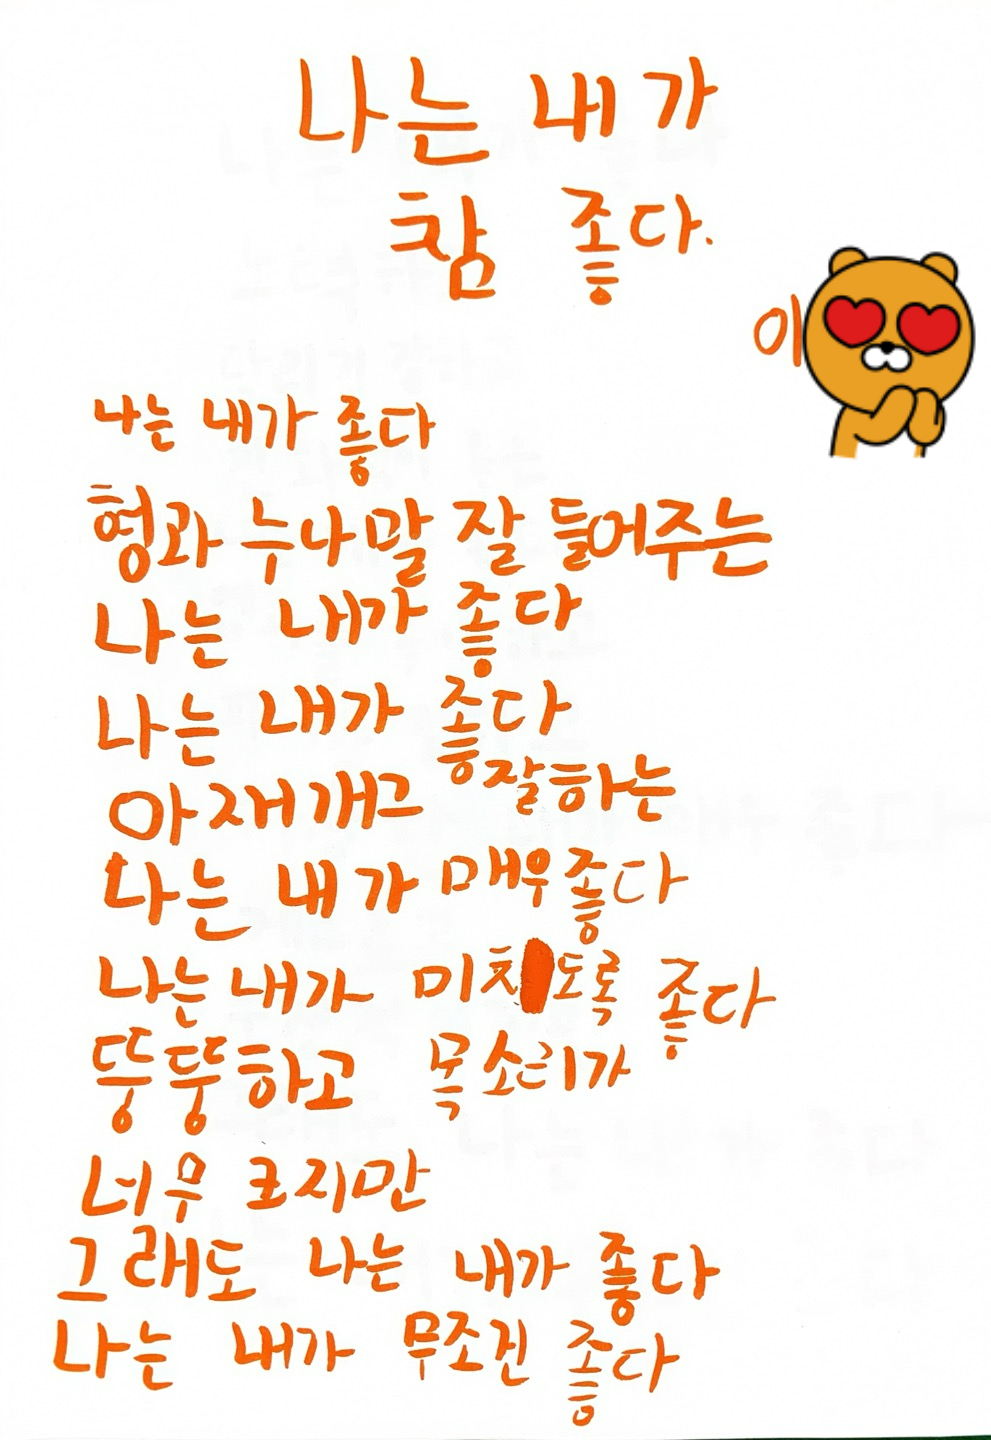 나는 내가
참 좋다.
이
나는 내가 좋다
형과 누나말 잘 들어주는
나는 내가 좋다
나는 내가 좋다
아재개그 잘하는
나는 내가 매우 좋다
나는 내가 미치도록 좋다
뚱뚱하고 목소리가
너무 크지만
그래도 나는 내가 좋다
나는 내가 무조건 좋다